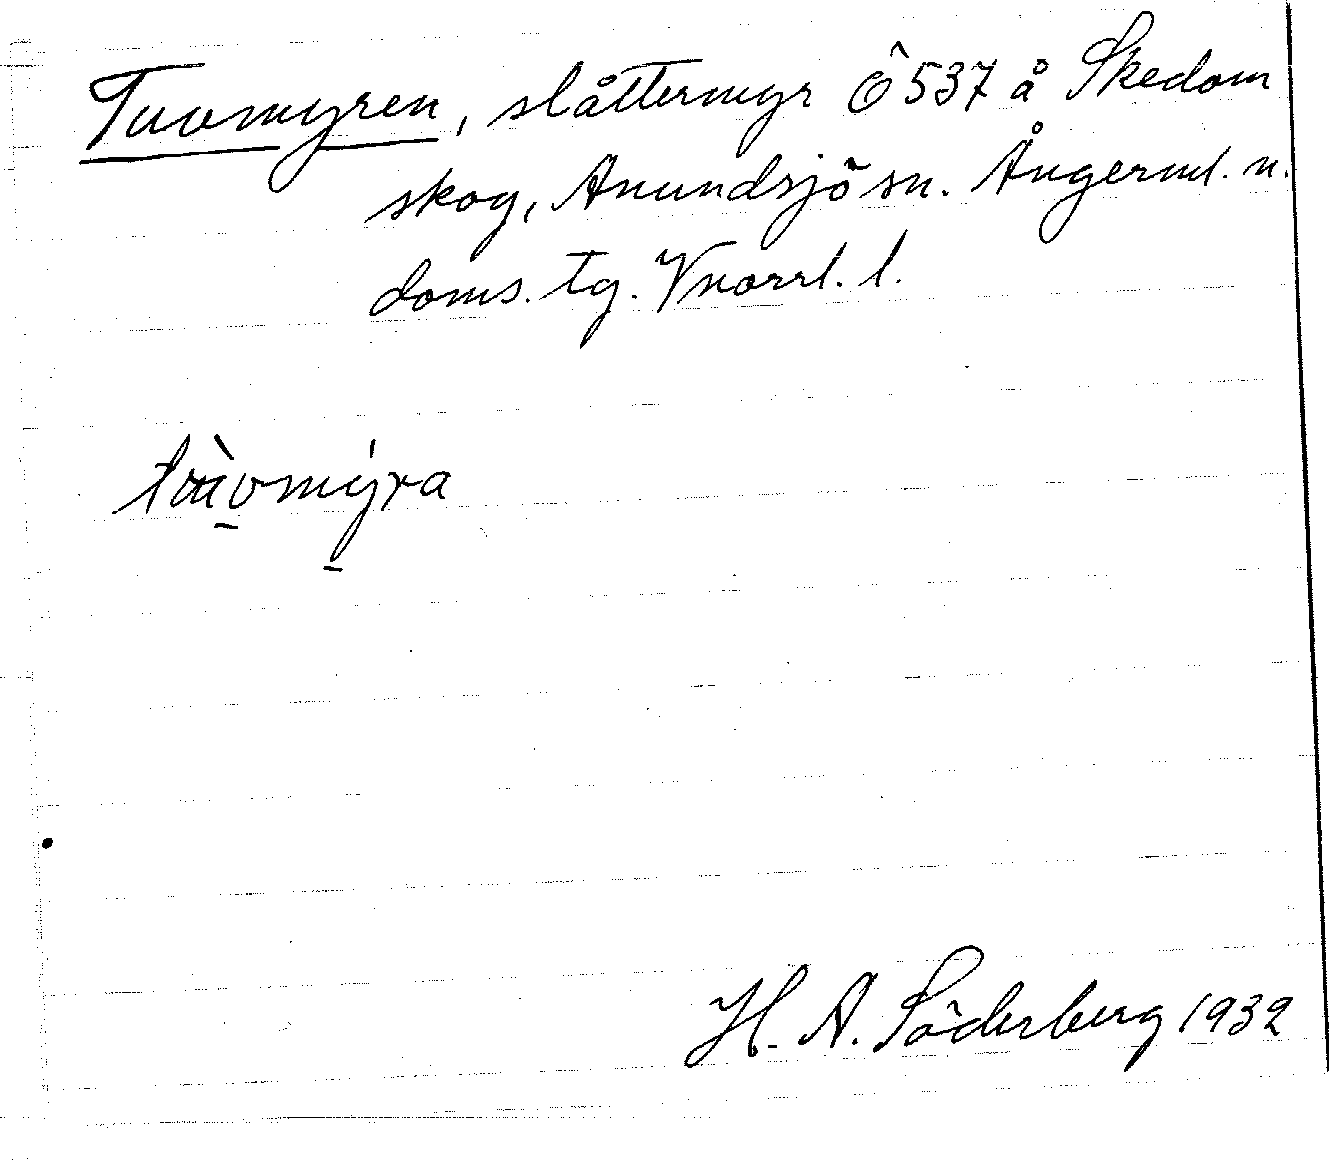 Tuvmyren, slåttermyr Ö 537 å Skedom
skog, Anundsjö sn. Ångerml. n.
doms. tg. Vnorrl. l.
H. A. Söderberg 1932